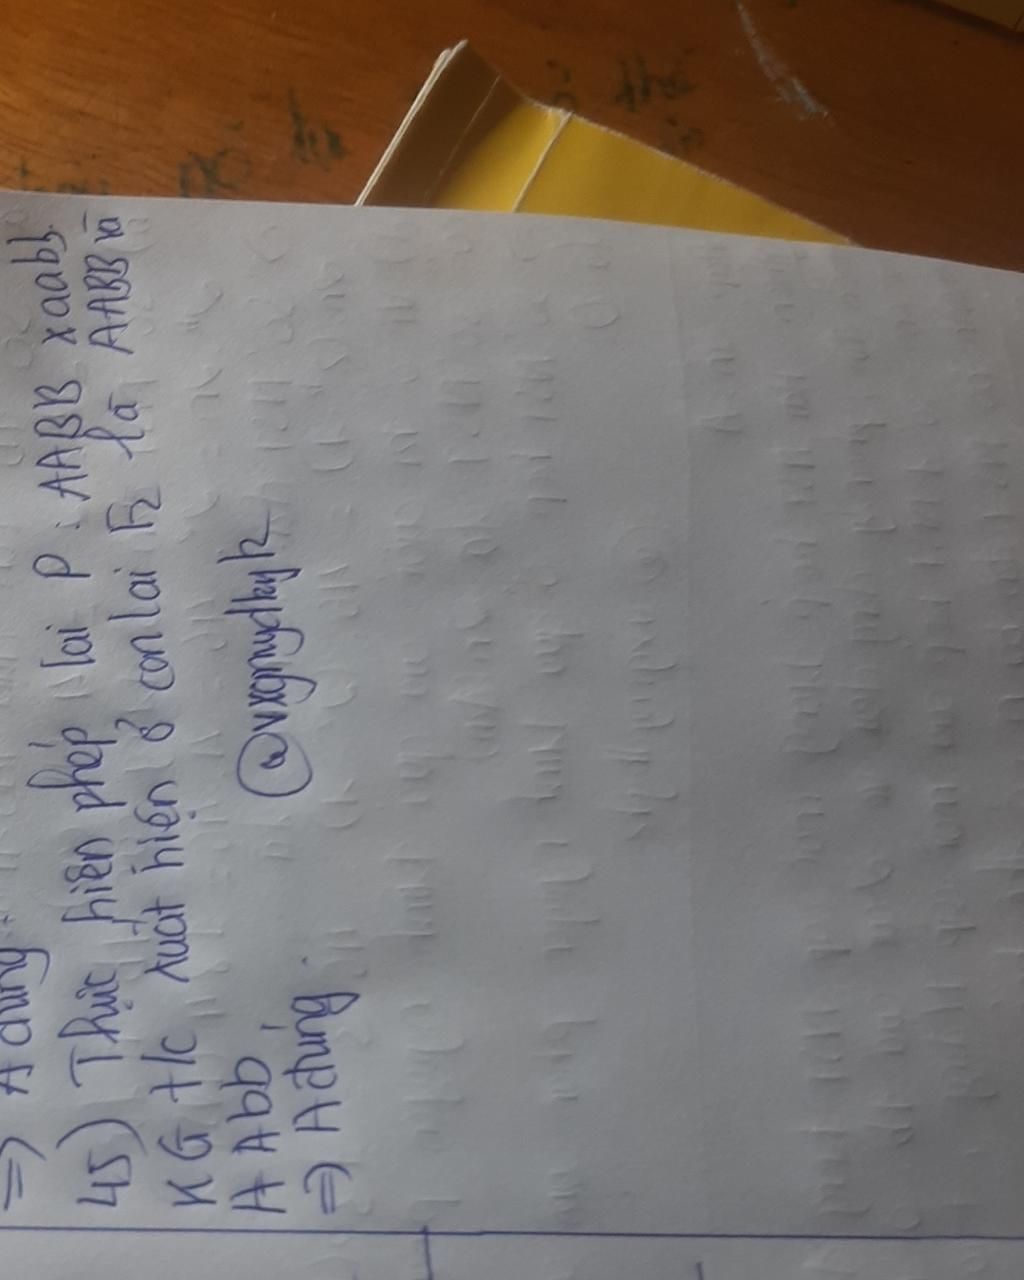 ⇒ A đúng.
45) Thực hiện phép lai P : AABB x aabb.
KG t/c xuất hiện ở con lai F2 là AABB và
AAbb
@vxgmydkyk
⇒ A đúng.